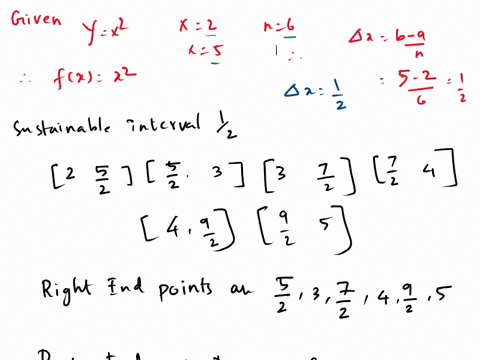 Given y = x² x = 2 n = 6 Δx = b-a/n
x = 5 ∴
∴ f(x) = x² Δx = 1/2 = 5-2/6 = 1/2
Sustainable interval 1/2
[2 5/2] [5/2 . 3] [3 7/2] [7/2 4]
[4, 9/2] [9/2 5]
Right End points are 5/2, 3, 7/2, 4, 9/2, 5